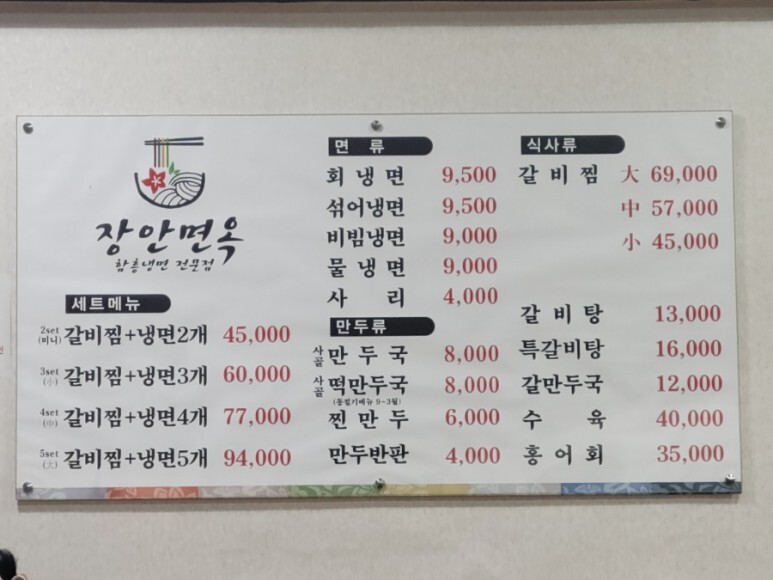 장안면옥
함흥냉면 전문점
세트메뉴
2set (미니) 갈비찜+냉면2개 45,000
3set (小) 갈비찜+냉면3개 60,000
4set (中) 갈비찜+냉면4개 77,000
5set (大) 갈비찜+냉면5개 94,000
면 류
회 냉 면 9,500
섞어냉면 9,500
비빔냉면 9,000
물 냉 면 9,000
사 리 4,000
만두류
사골 만 두 국 8,000
사골 떡만두국 8,000
(동절기메뉴 9~3월)
찐 만 두 6,000
만두반판 4,000
식사류
갈 비 찜 大 69,000
中 57,000
小 45,000
갈 비 탕 13,000
특갈비탕 16,000
갈만두국 12,000
수 육 40,000
홍 어 회 35,000